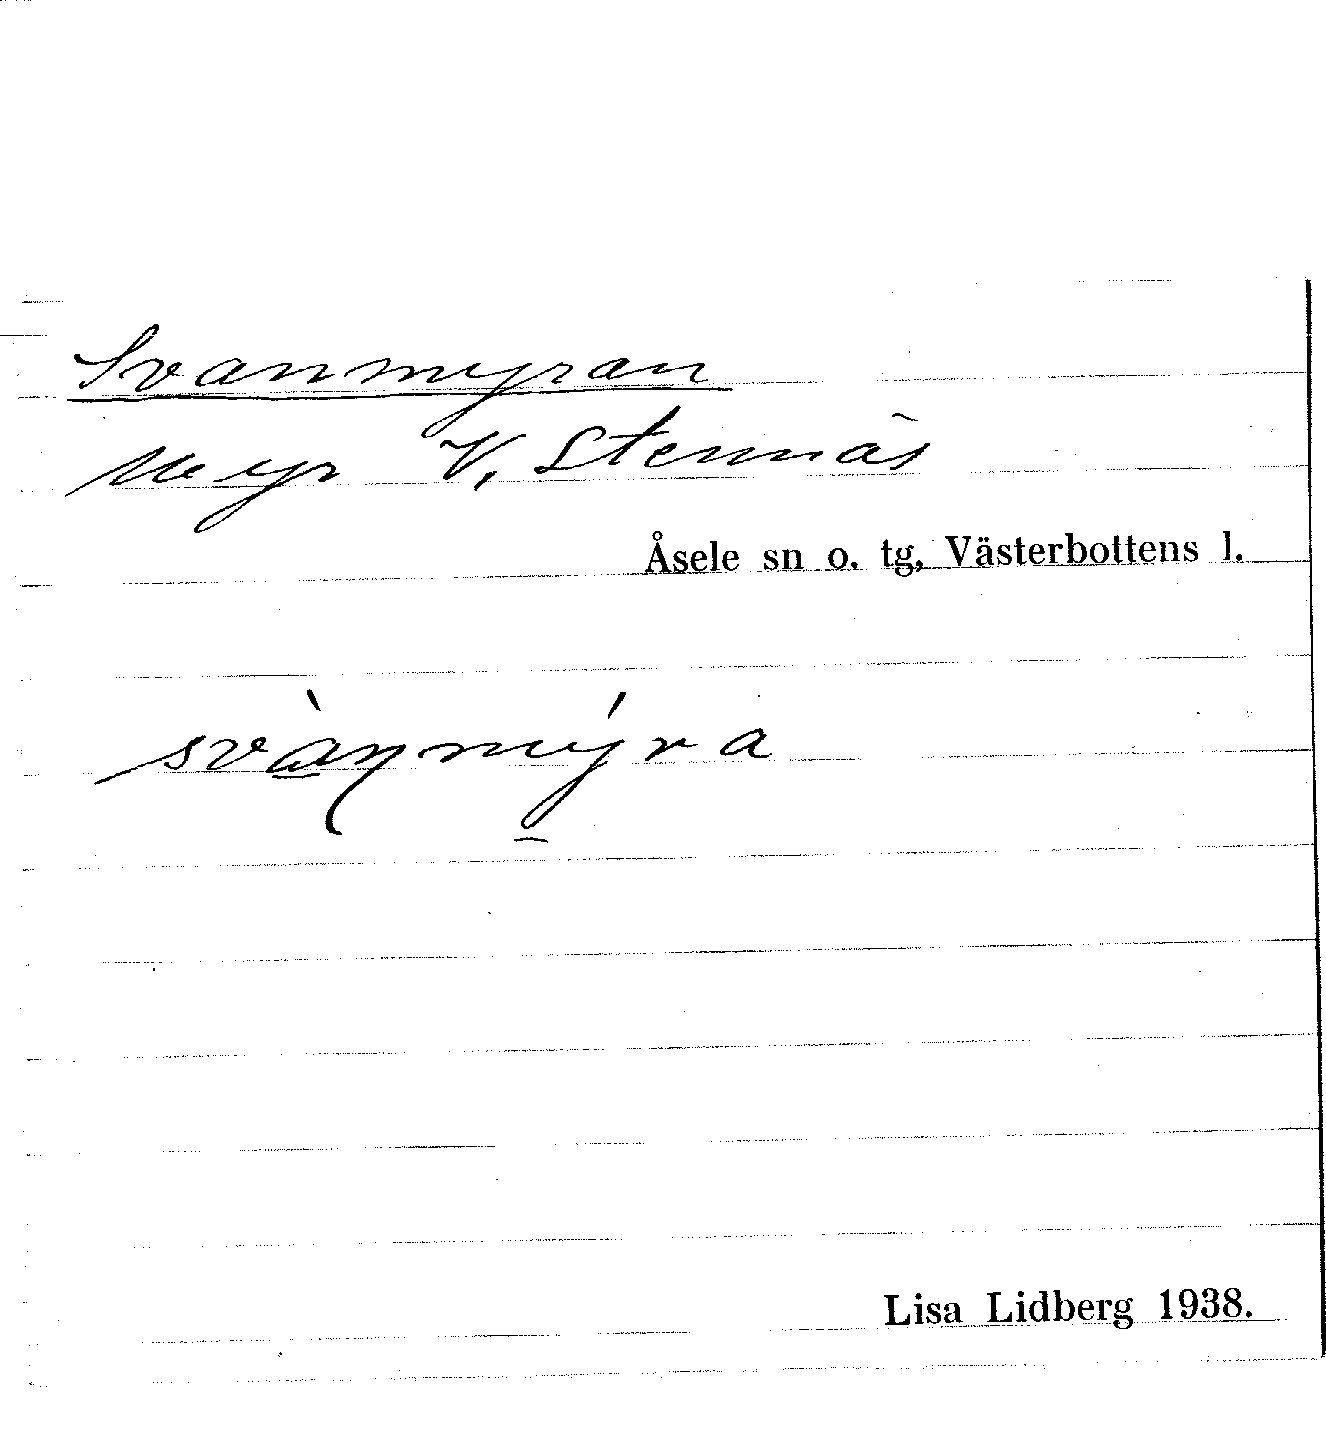 Svanmyran
Myr V. Stennäs
Åsele sn o. tg, Västerbottens l.
svàn̩mýra
Lisa Lidberg 1938.